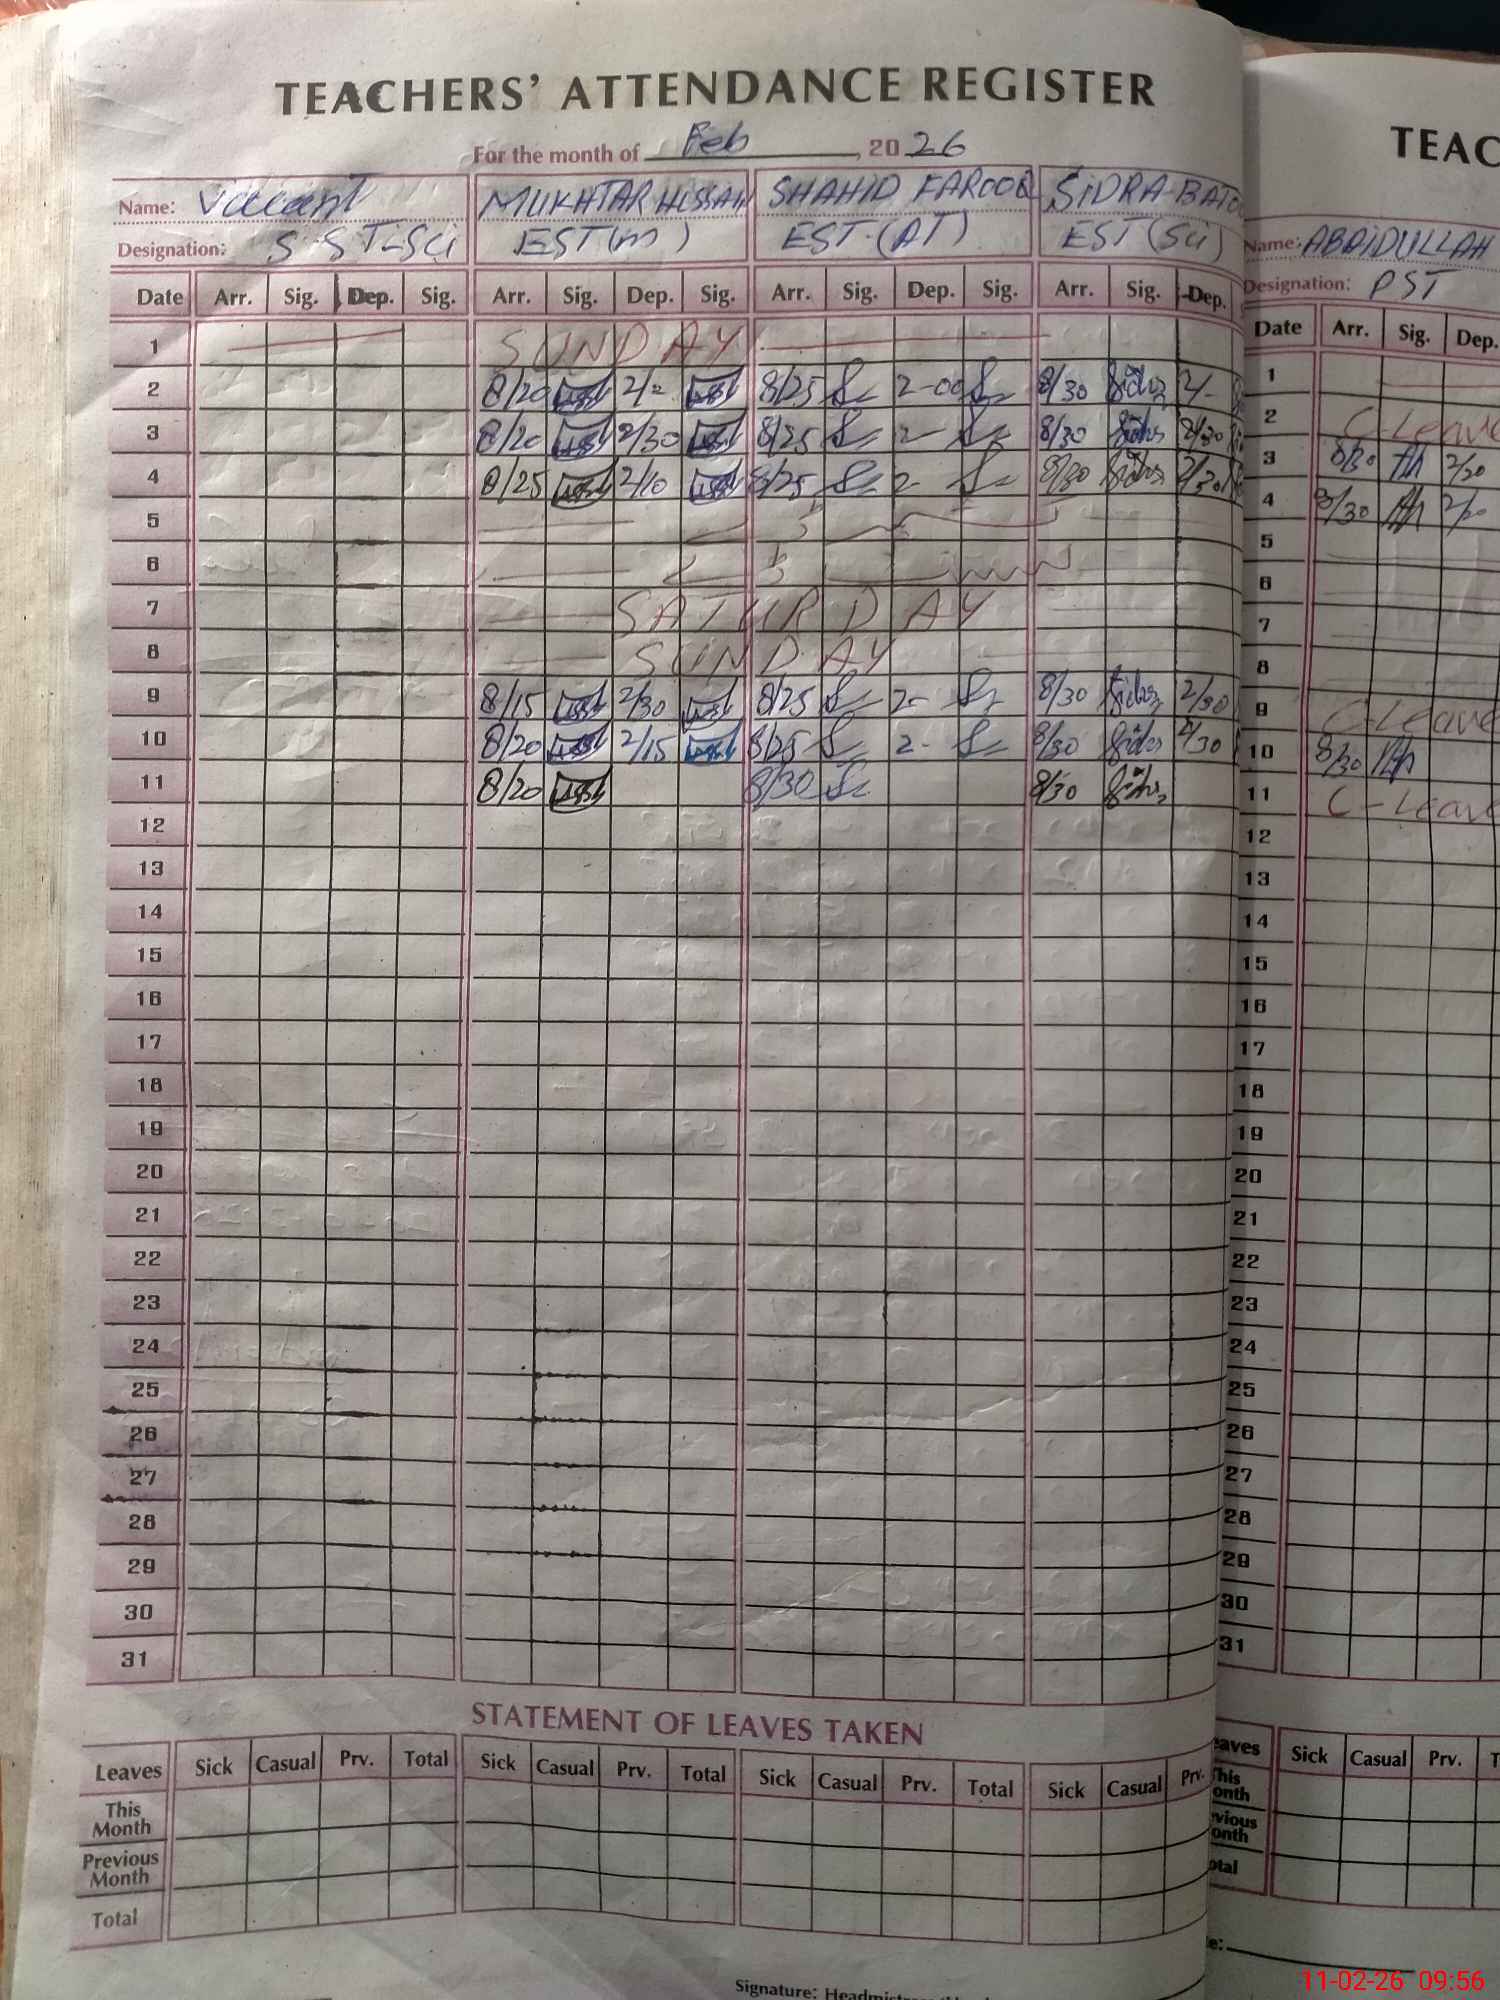 TEACHERS' ATTENDANCE REGISTER
For the month of Feb, 20 26
Name: Vacant MUKHTAR HUSSAIN SHAHID FAROOQ SIDRA-BATO
Designation: S S T-Sci EST(m) EST.(AT) EST (Sci)
Date Arr. Sig. Dep. Sig. Arr. Sig. Dep. Sig. Arr. Sig. Dep. Sig. Arr. Sig. Dep.
1 SUNDAY
2 8/20 2/- 8/25 2-00 8/30 Sidra 2/-
3 8/20 2/30 8/25 2- 8/30 Sidra 2/30
4 8/25 2/10 8/25 2- 8/30 Sidra 2/30
5
6
7 SATURDAY
8 SUNDAY
9 8/15 2/30 8/25 2- 8/30 Sidra 2/30
10 8/20 2/15 8/25 2- 8/30 Sidra 2/30
11 8/20 8/30 8/30 Sidra
12
13
14
15
16
17
18
19
20
21
22
23
24
25
26
27
28
29
30
31
STATEMENT OF LEAVES TAKEN
Leaves Sick Casual Prv. Total Sick Casual Prv. Total Sick Casual Prv. Total Sick Casual Prv.
This Month
Previous Month
Total
Signature:
TEAC
Name: ABAIDULLAH
Designation: PST
Date Arr. Sig. Dep.
1
2 C-Leave
3 8/30 Ah 2/20
4 8/30 Ah 2/20
5
6
7
8
9 C-Leave
10 8/30 Ah
11 C-Leave
12
13
14
15
16
17
18
19
20
21
22
23
24
25
26
27
28
29
30
31
eaves Sick Casual Prv. T
This
onth
vious
onth
otal
e:
11-02-26 09:56